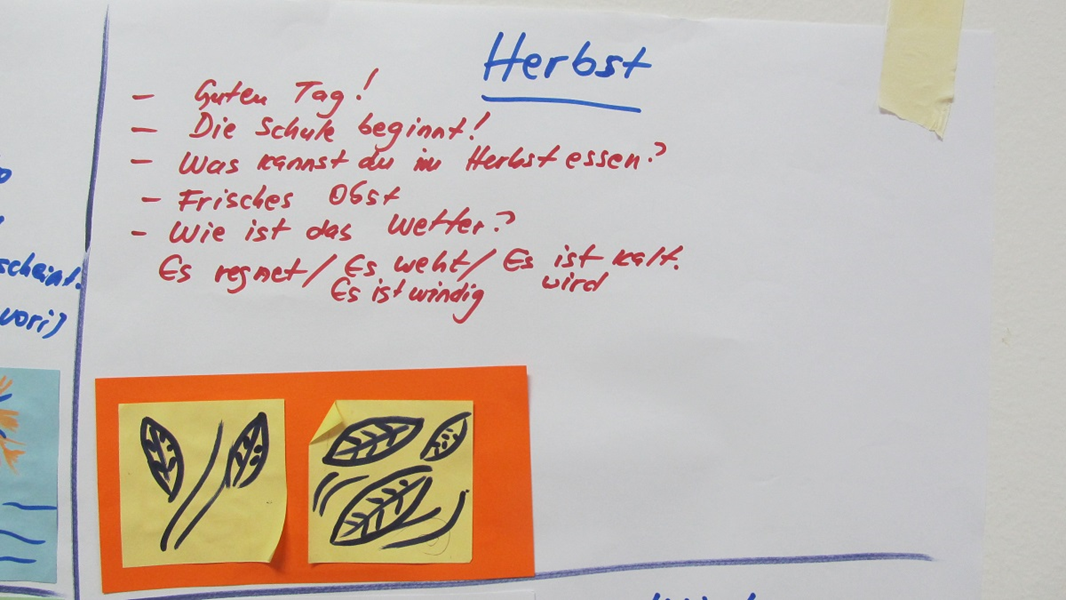 Herbst
- Guten Tag!
- Die Schule beginnt!
- Was kannst du im Herbst essen?
- Frisches Obst
- Wie ist das Wetter?
Es regnet/ Es weht/ Es ist kalt.
Es ist windig wird
scheint.